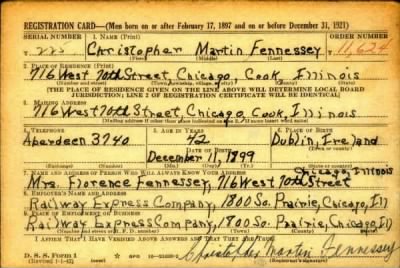 REGISTRATION CARD—(Men born on or after February 17, 1897 and on or before December 31, 1921)
SERIAL NUMBER 1. NAME (Print) ORDER NUMBER
225 Christopher Martin Fennessey 11,624
(First) (Middle) (Last)
2. PLACE OF RESIDENCE (Print)
716 West 70th Street, Chicago, Cook, Illinois
(Number and street) (Town, township, village, or city) (County) (State)
[THE PLACE OF RESIDENCE GIVEN ON THE LINE ABOVE WILL DETERMINE LOCAL BOARD
JURISDICTION; LINE 2 OF REGISTRATION CERTIFICATE WILL BE IDENTICAL]
3. MAILING ADDRESS
716 West 70th Street, Chicago, Cook, Illinois
[Mailing address if other than place indicated on line 2. If same insert word same]
4. TELEPHONE 5. AGE IN YEARS 6. PLACE OF BIRTH
Aberdeen 3740 42 Dublin, Ireland
DATE OF BIRTH
December 11, 1899
(Exchange) (Number) (Mo.) (Day) (Yr.) (State or country)
7. NAME AND ADDRESS OF PERSON WHO WILL ALWAYS KNOW YOUR ADDRESS Chicago, Illinois
Mrs. Florence Fennessey, 716 West 70th Street
8. EMPLOYER'S NAME AND ADDRESS
Railway Express Company, 1800 So. Prairie, Chicago, Ill
9. PLACE OF EMPLOYMENT OR BUSINESS
Railway Express Company, 1800 So. Prairie, Chicago, Ill
(Number and street or R. F. D. number) (Town) (County) (State)
I AFFIRM THAT I HAVE VERIFIED ABOVE ANSWERS AND THAT THEY ARE TRUE.
D. S. S. Form 1
(Revised 1-1-42) Christopher Martin Fennessey